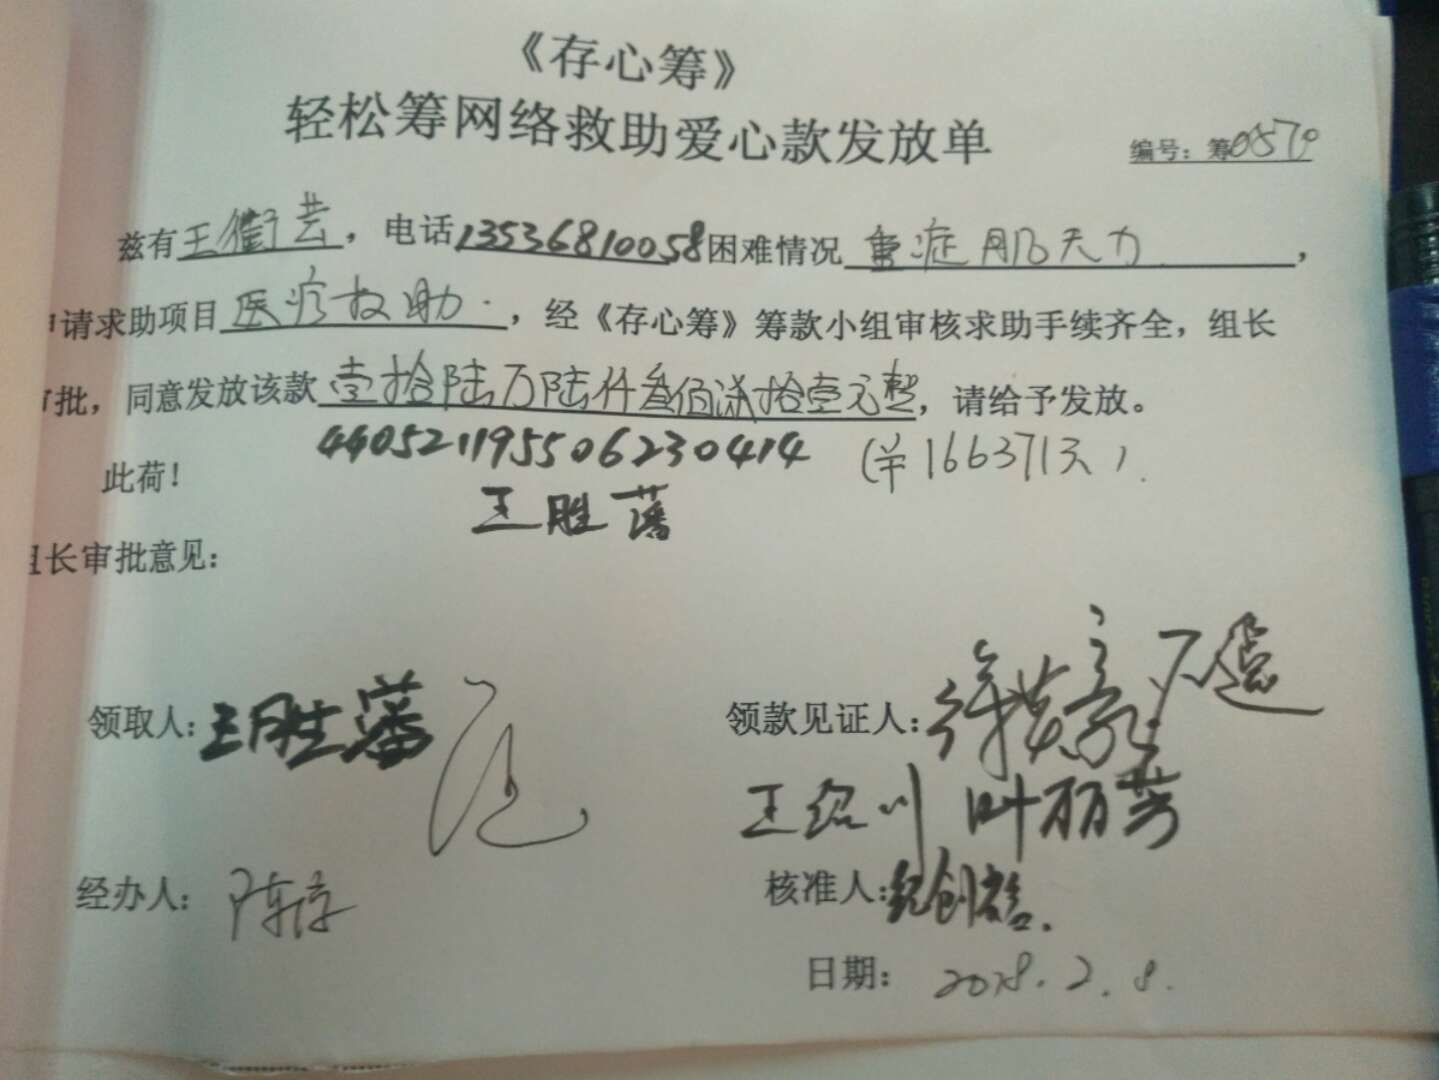 《存心筹》
轻松筹网络救助爱心款发放单
编号：筹0570
兹有王衞芸，电话13536810058困难情况重症肌无力，
申请求助项目医疗救助.，经《存心筹》筹款小组审核求助手续齐全，组长
审批，同意发放该款壹拾陆万陆仟叁佰柒拾壹元整，请给予发放。
此荷！ 440521195506230414 (￥166371元)
王胜藩
组长审批意见：
领取人：王胜藩 领款见证人：
王绍川 叶丽芳
经办人： 核准人：
日期：2018.2.8.